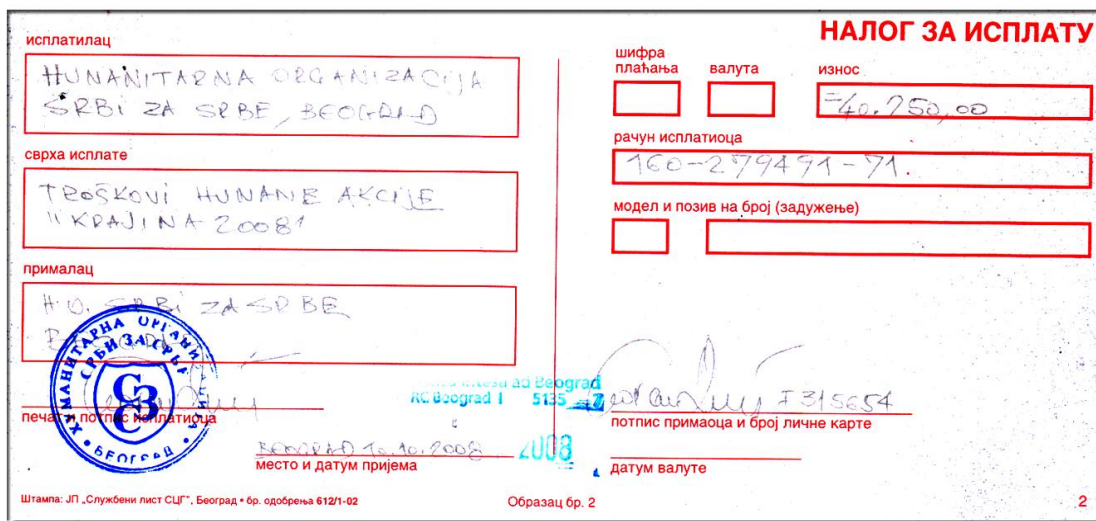 НАЛОГ ЗА ИСПЛАТУ
исплатилац
HUNANITARNA ORGANIZACIJA
SRBI ZA SRBE, BEOGRAD
сврха исплате
TROŠKOVI HUNANE AKCIJE
"KRAJINA 2008"
прималац
H.O. SRBI ZA SRBE
ХУМАНИТАРНА ОРГАНИЗАЦИЈА
СРБИ ЗА СРБЕ
БЕОГРАД
печат и потпис исплатиоца
BEOGRAD 10.10.2008
место и датум пријема
шифра плаћања
валута
износ
=40.750,00
рачун исплатиоца
160-279491-71.
модел и позив на број (задужење)
Intesa ad Beograd
RC Beograd 1 5135
2008
I315654
потпис примаоца и број личне карте
датум валуте
Штампа: ЈП „Службени лист СЦГ", Београд • бр. одобрења 612/1-02
Образац бр. 2
2